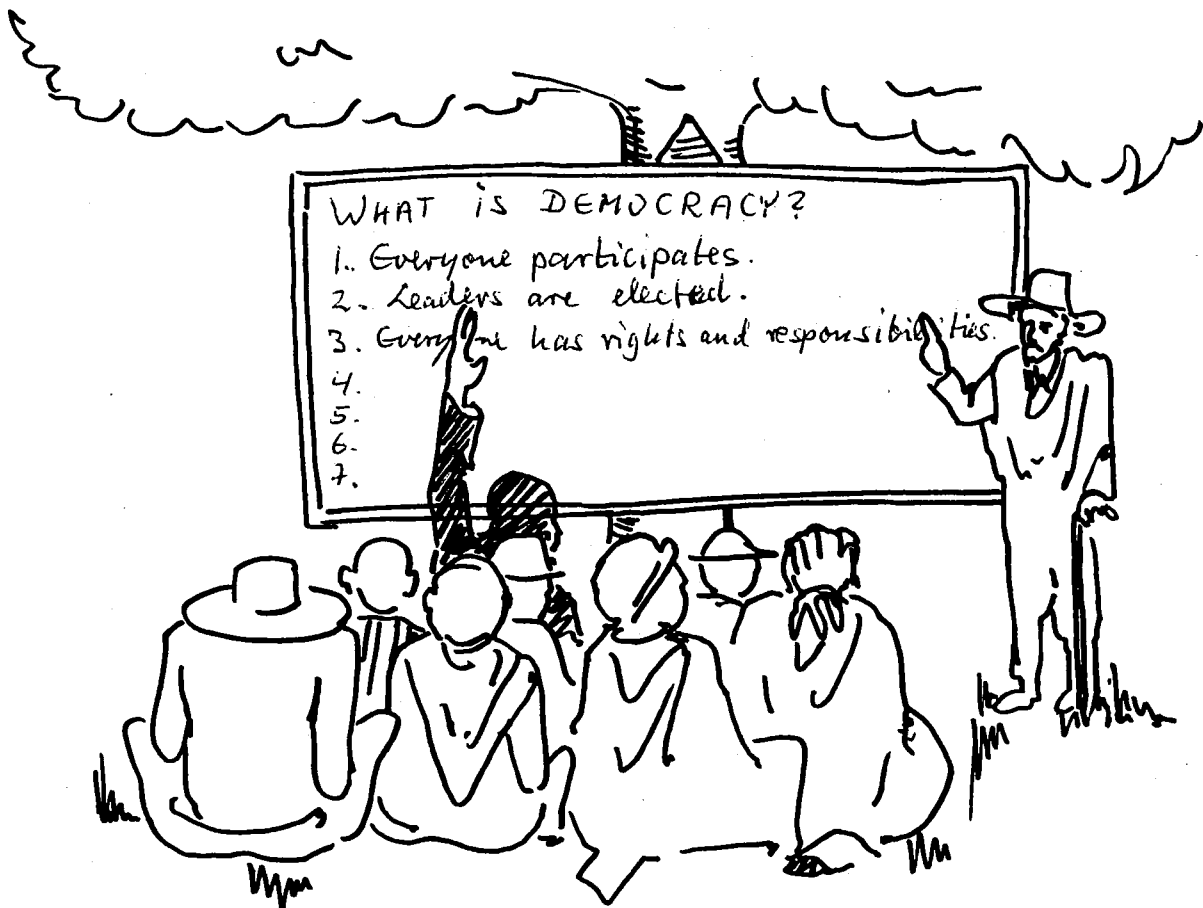 WHAT iS DEMOCRACY?
1. Everyone participates.
2. Leaders are elected.
3. Everyone has rights and responsibilities.
4.
5.
6.
7.